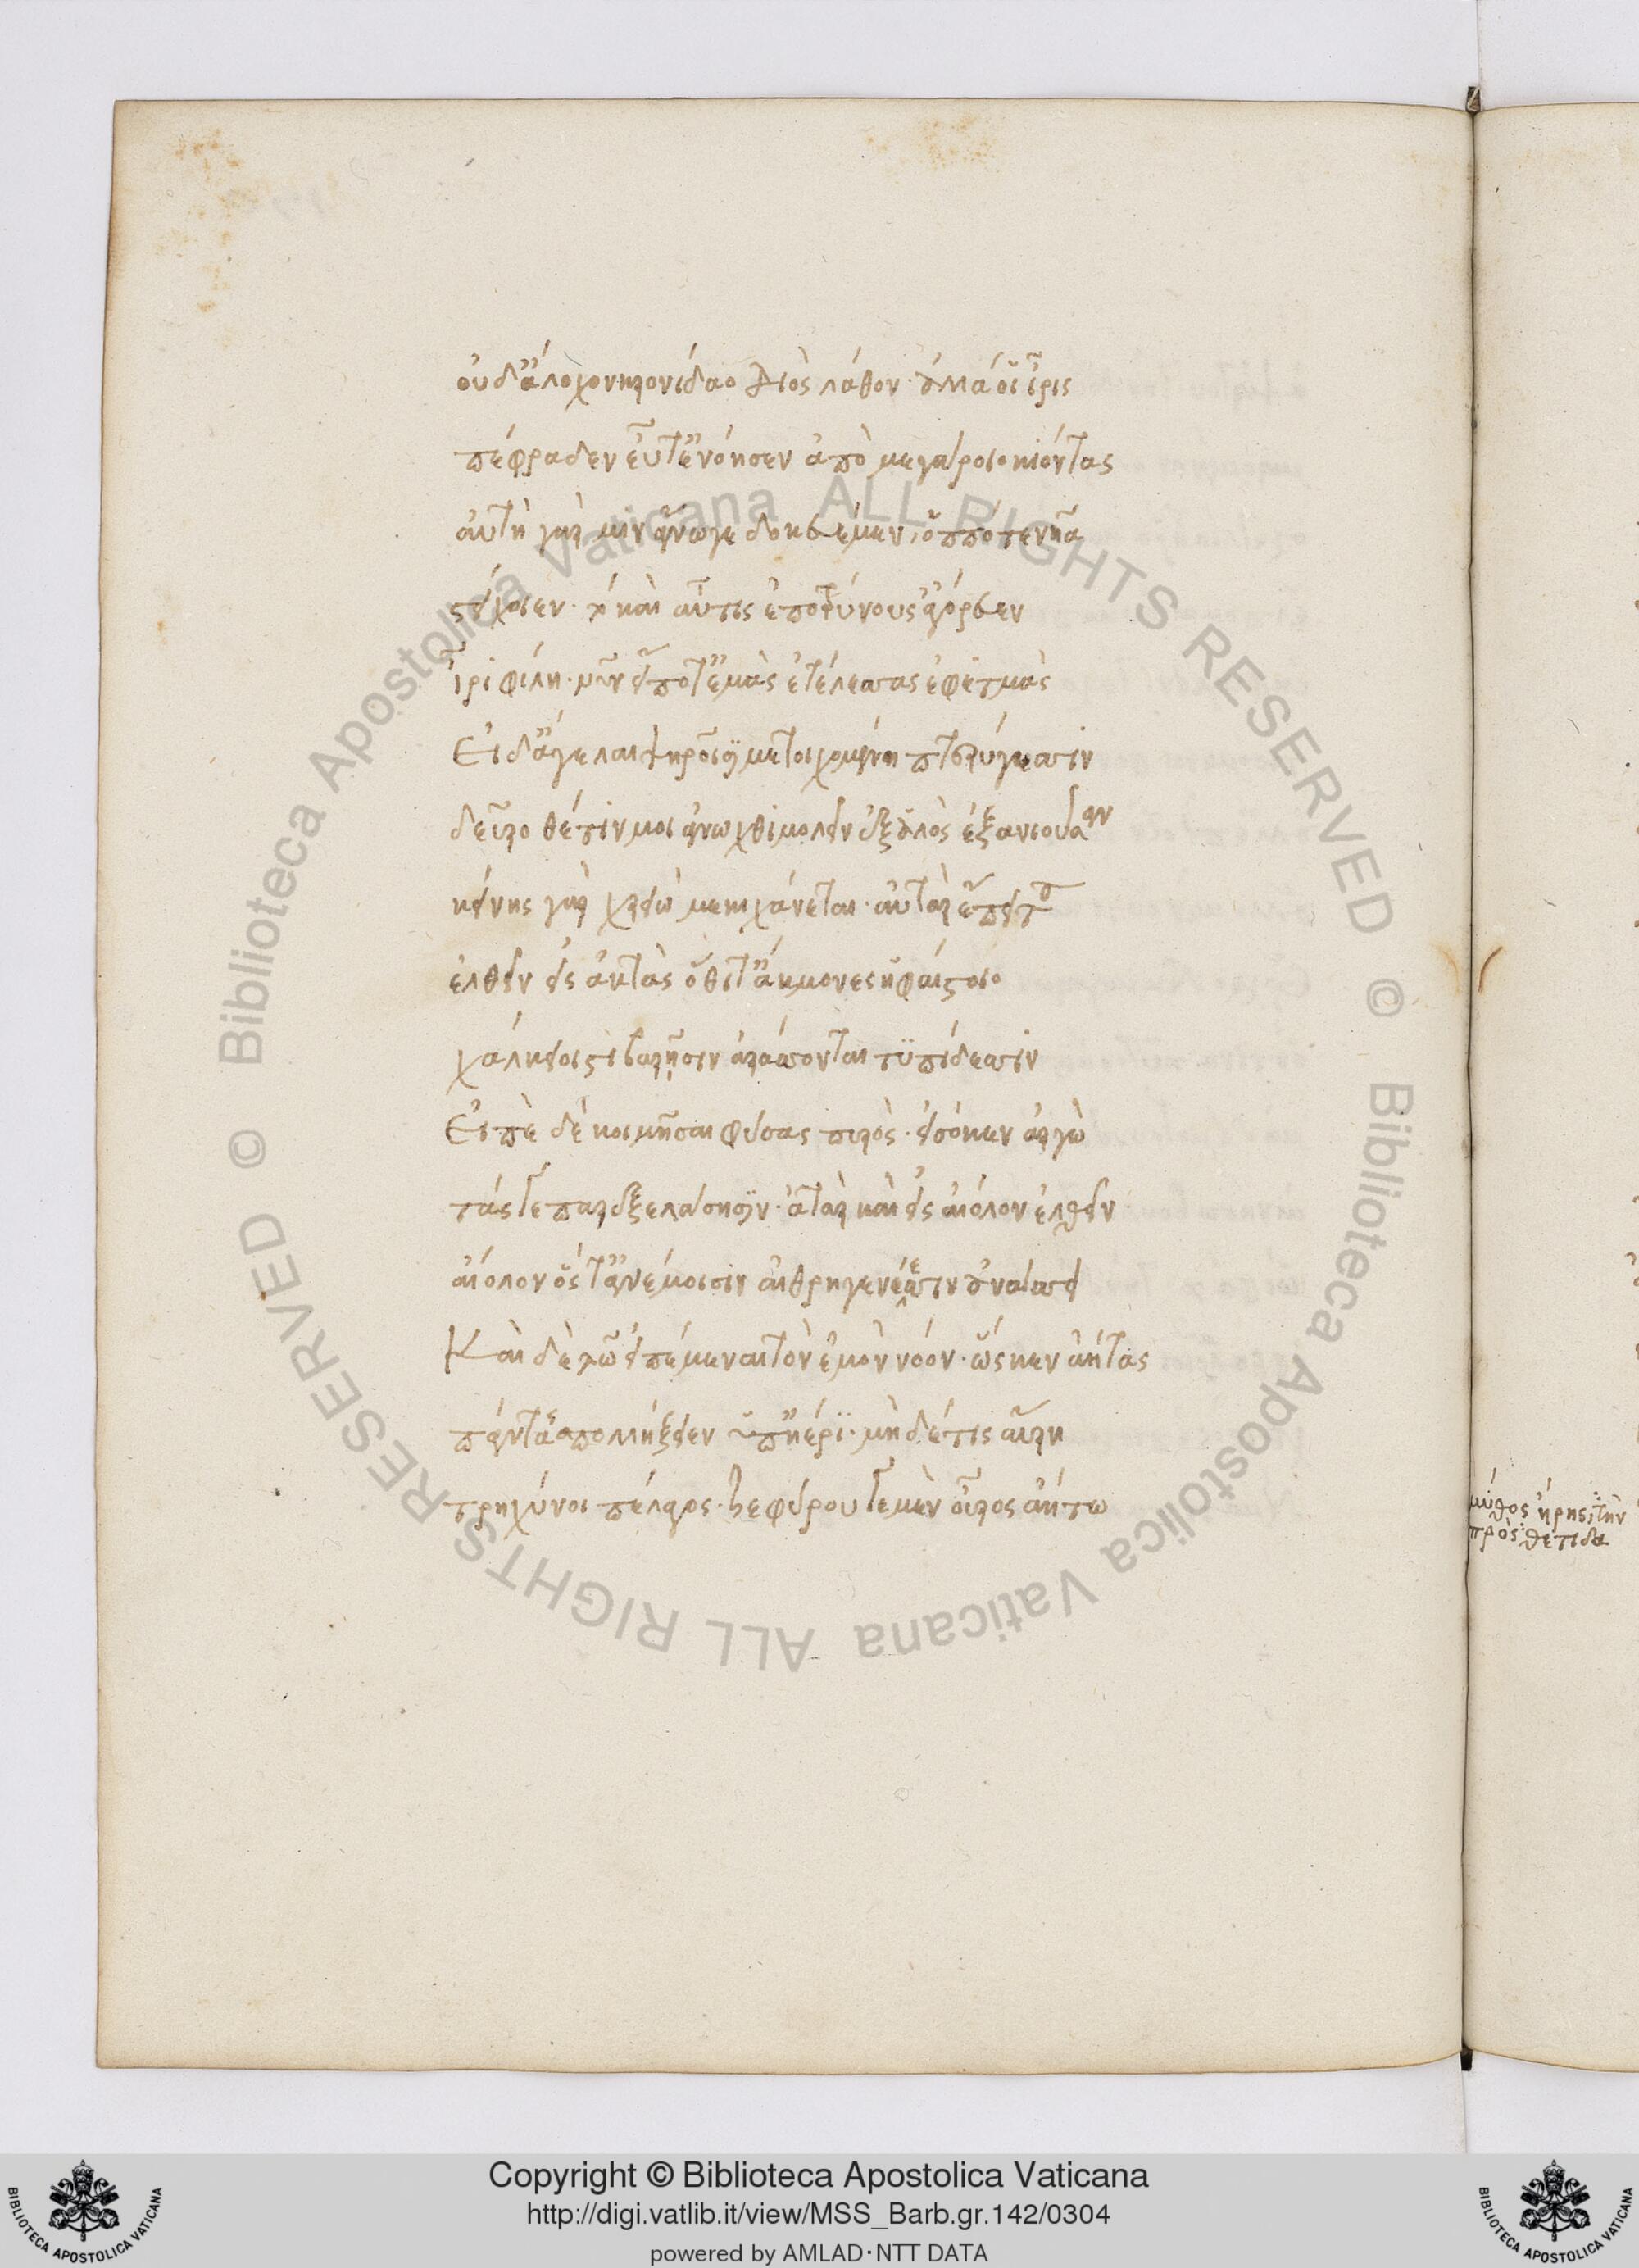 οὐδ' ἄλοχον κρονίδαο Διὸς λάθον· ἀλλά οἱ ἶρις
πέφραδεν εὖτ' ἐνόησεν ἀπὸ μεγάροιο κιόντας
αὐτὴ γάρ μιν ἄνωγε δοκευέμεν, ὁππότε νῆα
στείχοιεν· καὶ αὖτις ἐποτρύνουσ' ἀγόρευεν
ἶρι φίλη· νῦν εἴποτ' ἐμὰς ἐτέλεσσας ἐφετμὰς
Εἰ δ' ἄγε λαιψηροῖσι μετοιχομένη πτερύγεσσιν
δεῦρο θέτιν μοι ἄνωχθι μολεῖν ἐξ ἁλὸς ἐξανιοῦσαν
κείνης γὰρ χρειώ με κιχάνεται· αὐτὰρ ἔπειτα
ἐλθεῖν εἰς ἀκτὰς ὅθι τ' ἄκμονες ἡφαίστοιο
χάλκειοι στιβαρῇσιν ἀράσσονται τυπίδεσσιν
Εἰπὲ δὲ κοιμῆσαι φύσας πυρὸς· εἰσόκεν ἀργὼ
τάς γε παρεξελάσησιν· ἀτὰρ καὶ εἰς αἰόλον ἐλθεῖν
αἰόλον ὅς τ' ἀνέμοισιν αἰθρηγενέεσσιν ἀνάσσει
Καὶ δὲ τῷ εἰπέμεναι τὸν ἐμὸν νόον· ὥς κεν ἀήτας
πάντας ἀπολλήξειεν ὑπ' ἠέρι· μηδέ τις αὔρη
τρηχύνοι πέλαγος· ζεφύρου γε μὲν οὖρος ἀήτω
μύθος ἥρης τὴν
πρὸς θετιδα
Copyright © Biblioteca Apostolica Vaticana
http://digi.vatlib.it/view/MSS_Barb.gr.142/0304
powered by AMLAD·NTT DATA
BIBLIOTECA APOSTOLICA VATICANA
BIBLIOTECA APOSTOLICA VATICANA
© Biblioteca Apostolica Vaticana ALL RIGHTS RESERVED © Biblioteca Apostolica Vaticana ALL RIGHTS RESERVED